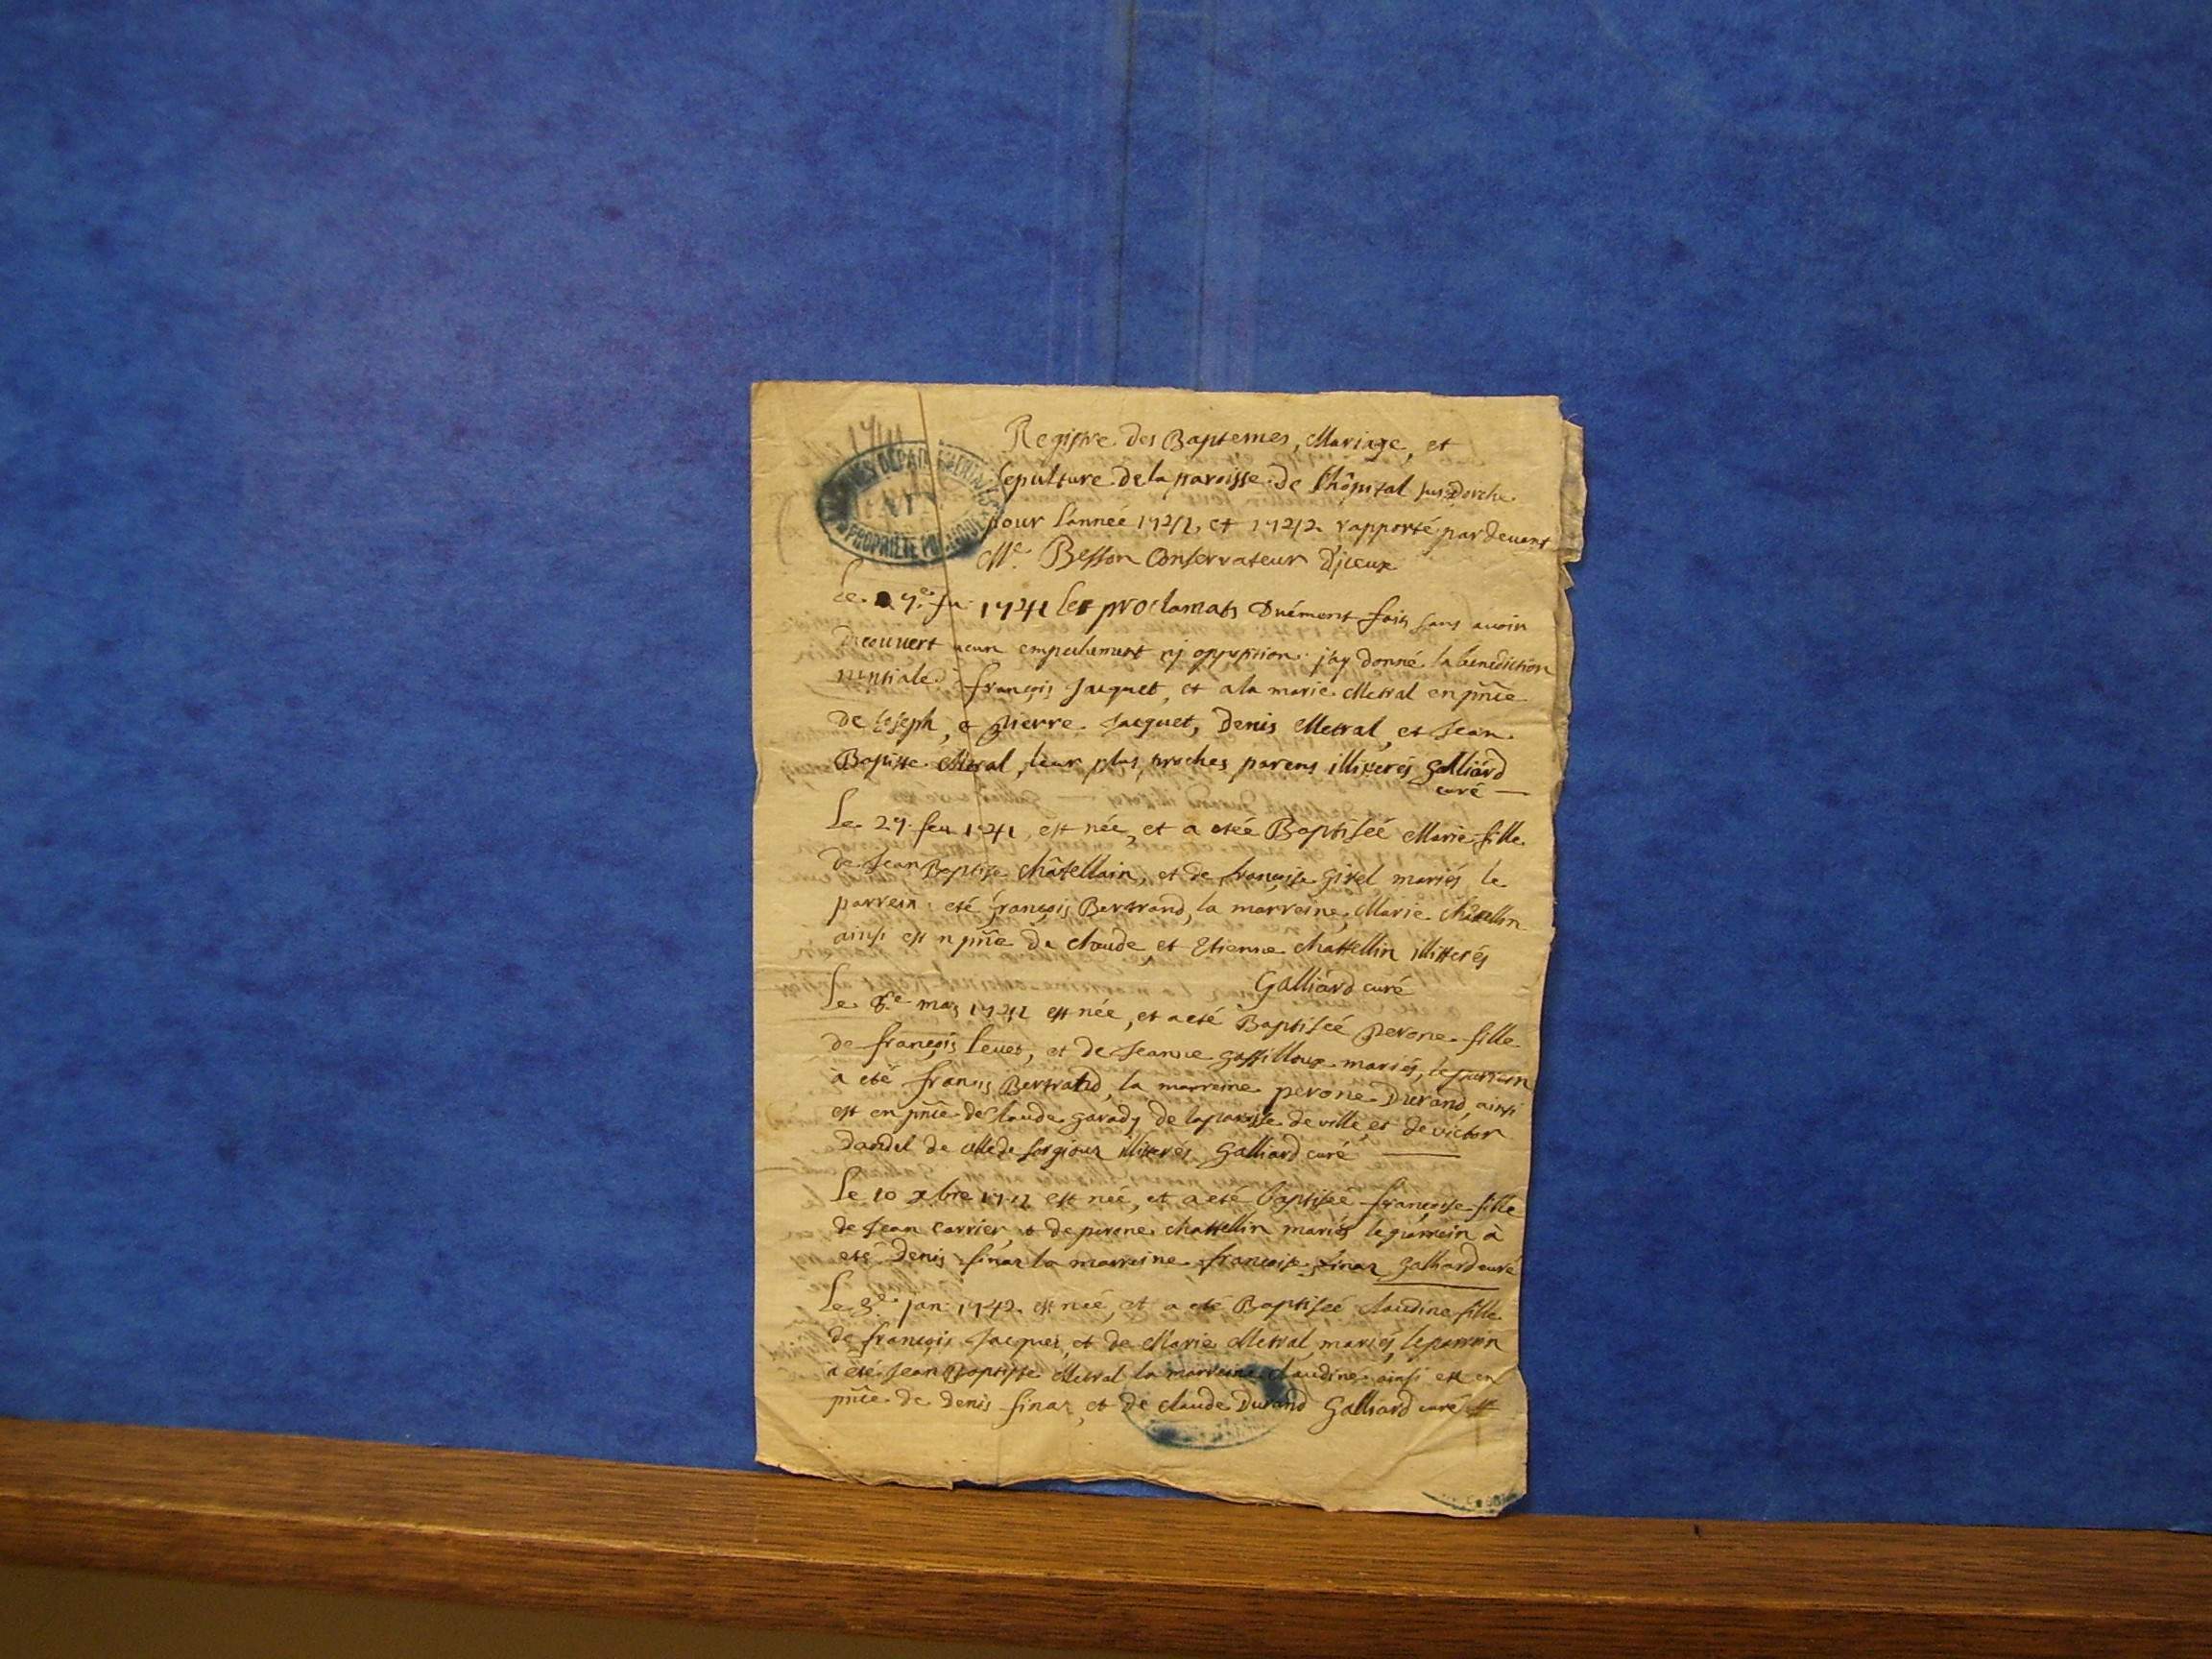 1741
ARCHIVES DÉPARTEMENTALES
AIN
PROPRIÉTÉ PUBLIQUE
Registre des Baptemes, Mariage, et
sepulture de la paroisse de l'hôpital sus Dorche
pour l'année 1741, et 1742 rapporté par devant
Me. Besson Conservateur d'jceux
Le 7e. fe. 1741 les proclamats duëment fais sans avoir
decouvert aucun empechement nj opposition j'ay donné la benediction
nuptiale à françois Jacquet, et a la marie Metral en pñce
de Joseph, & pierre Jacquet, Denis Metral, et Jean
Baptiste Metral, leur plus proches parens illiterés Galliard
curé
Le 27 feu 1741 est née, et a etée Baptiseé Marie fille
de Jean Baptiste Châtellain, et de françoise Girel mariés le
parrein eté françois Bertrand, la marreine Marie Châtellin
ainsi est n pñce de claude, et Etienne chattellin illitterés
Galliard curé
Le 8e mars 1741 est née, et a eté Baptiseé perone fille
de françois levet, et de Jeanne Gossilloux mariés, le parrein
à eté franis Bertrand, la marreine perone Durand, ainsi
est en pñce de claude garady de la paroisse de ville, et de victor
dandel de celle de sorgioux illiterés Galliard curé
Le 10 xbre 1741 est née, et a eté baptiseé françoise fille
de Jean Carrier, & de perone chattellin mariés le parrein à
eté Denis sinar la marreine françoise sinar Galliard curé
Le 3e. jan 1742 est née, et a eté Baptiseé claudine fille
de françois Jacquet, et de Marie Metral mariés, le parrein
à eté Jean Baptiste Metral la marreine claudine ainsi est en
pñce de denis sinar, et de claude Durand Galliard curé